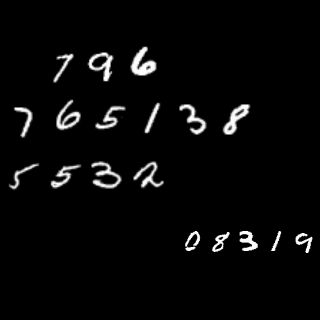 796
765138
5532
08319